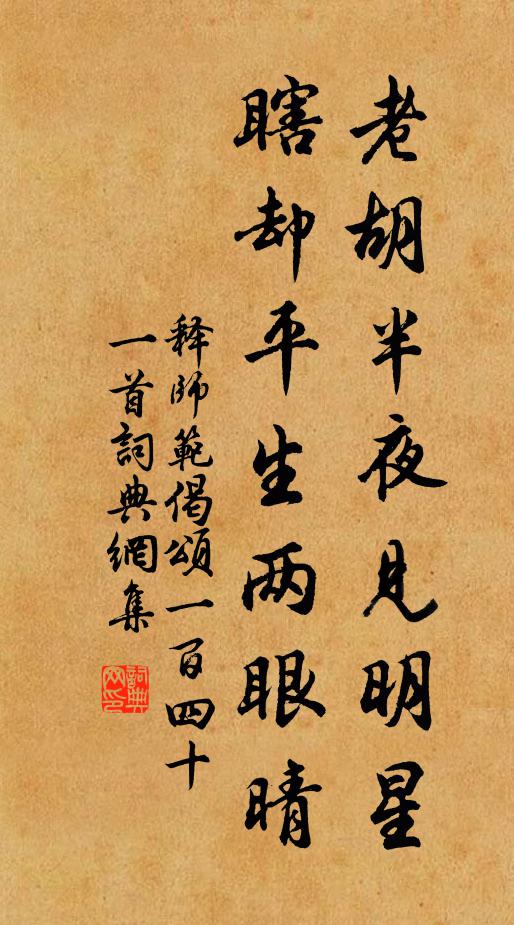 老胡半夜見明星
瞎却平生两眼晴
释師範偈頌一百四十
一首詞典網集
詞典
网印